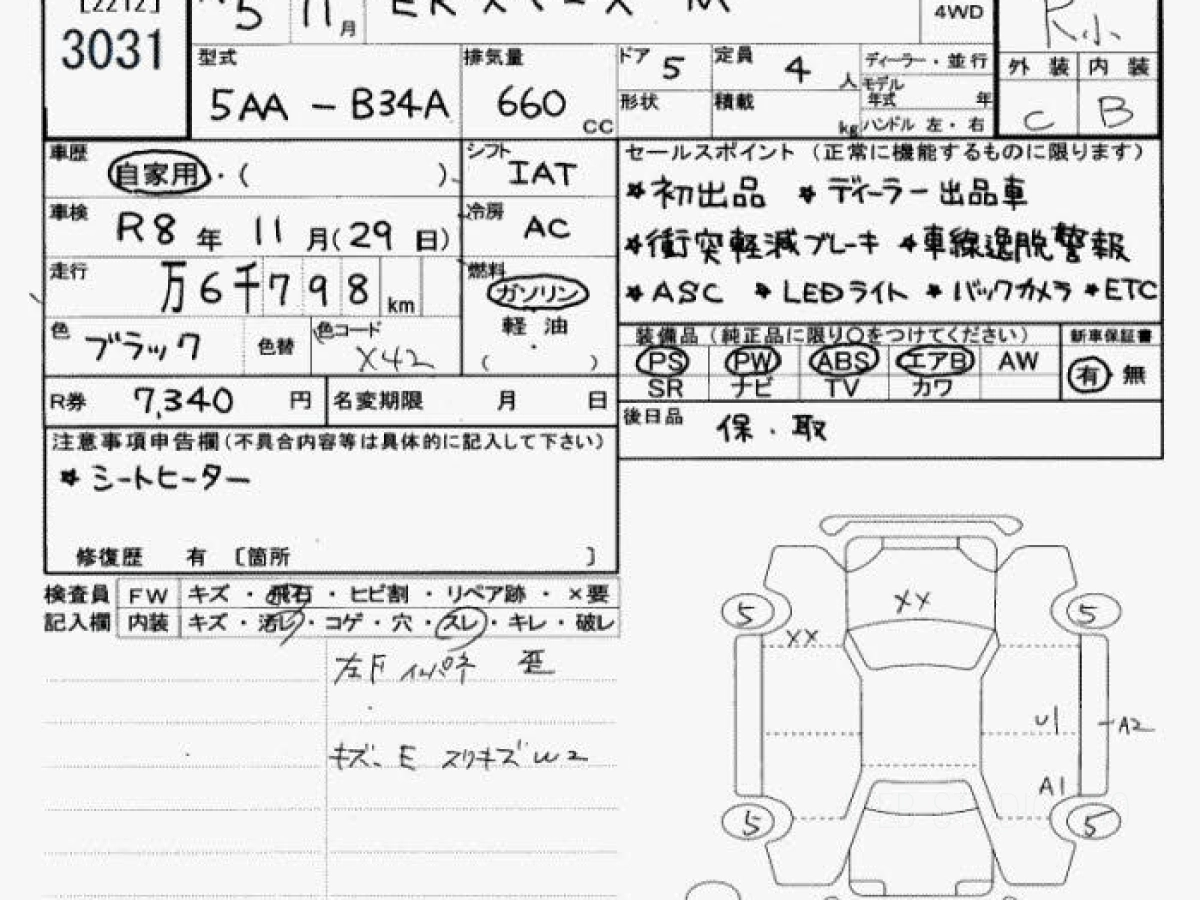 [2212]
3031
5 11 月
EK M
4WD
R小
型式 5AA - B34A
排気量 660 CC
ドア 5
定員 4 人
形状
積載 kg
ディーラー・並行
モデル年式 年
ハンドル 左・右
外装 内装
C B
車歴 自家用・( )
シフト IAT
車検 R8 年 11 月(29 日)
冷房 AC
走行 万6千798 km
燃料 ガソリン
軽油
( ・ )
色 ブラック
色替
色コード X42
R券 7,340 円
名変期限 月 日
セールスポイント (正常に機能するものに限ります)
*初出品 *ディーラー出品車
*衝突軽減ブレーキ *車線逸脱警報
*ASC *LEDライト *バックカメラ *ETC
装備品(純正品に限り○をつけてください)
新車保証書
PS PW ABS エアB AW
SR ナビ TV カワ
有 無
後日品 保.取
注意事項申告欄(不具合内容等は具体的に記入して下さい)
*シートヒーター
修復歴 有 〔箇所 〕
検査員 FW キズ・飛石・ヒビ割・リペア跡・×要
記入欄 内装 キズ・汚レ・コゲ・穴・スレ・キレ・破レ
左F インパネ 歪
キズ、E スリキズ W2
XX
5 5
XX
U1
A2
A1
5 5